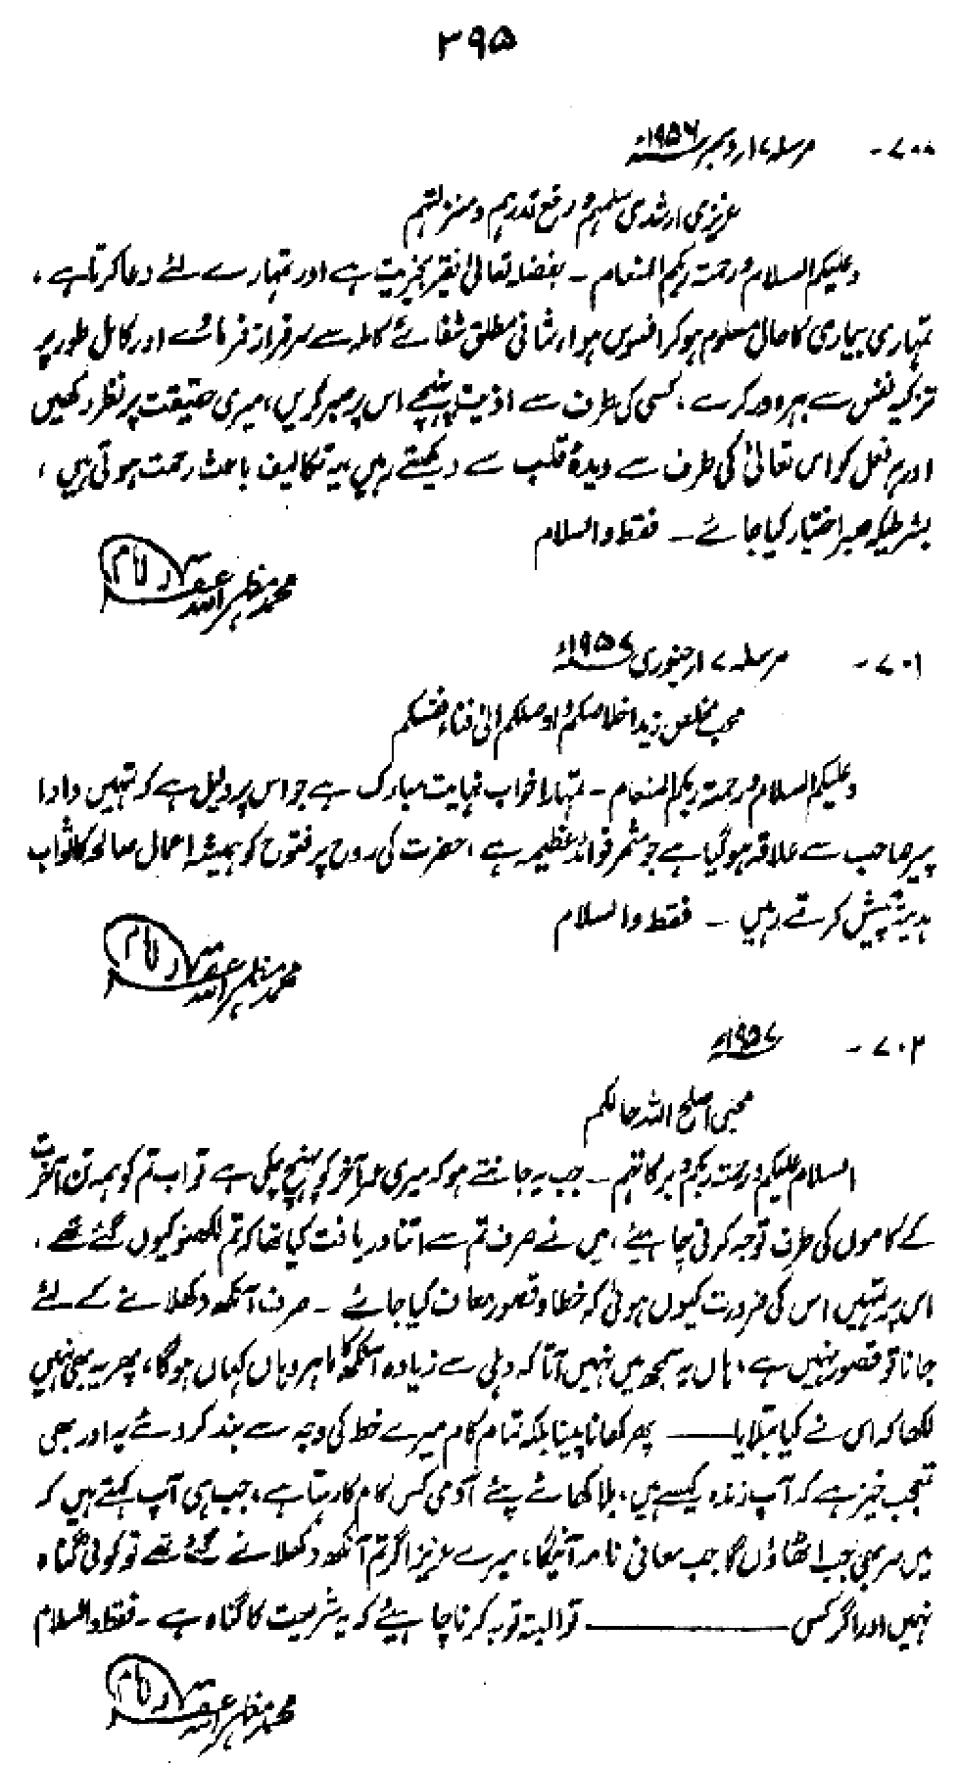 ۳۹۵
۷۰۰- مرسلہ ۱۷ر دسمبر ۱۹۵۶ء
عزیزی ارشدی سلمہم و رفع قدرہم و منزلتہم
وعلیکم السلام ورحمۃ ربکم المنعام ـ بفضلہ تعالیٰ فقیر بخیریت ہے اور تمہارے لئے دعا کرتا ہے،
تمہاری بیماری کا حال معلوم ہو کر افسوس ہوا، شافی مطلق شفائے کاملہ سے سرفراز فرمائے اور کامل طور پر
تزکیہ نفس سے بہرہ ور کرے، کسی کی طرف سے اذیت پہنچے اس پر صبر کریں، میری حقیقت پر نظر رکھیں
اور ہر فعل کو اس تعالیٰ کی طرف سے دیدۂ قلب سے دیکھتے رہیں یہ تکالیف باعث رحمت ہوتی ہیں،
بشرطیکہ صبر اختیار کیا جائے ـ فقط والسلام
محمد مظہر اللہ غفرلہ امام
۷۰۱- مرسلہ ۷ار جنوری ۱۹۵۷ء
محب مخلص زید اخلاصکم و اوصلکم الیٰ فناء نفسکم
وعلیکم السلام ورحمۃ ربکم المنعام ـ تمہارا خواب نہایت مبارک ہے جو اس پر دلیل ہے کہ تمہیں دادا
پیر صاحب سے علاقہ ہو گیا ہے جو مثمر فوائد عظیمہ ہے، حضرت کی روح پر فتوح کو ہمیشہ اعمال صالحہ کا ثواب
ہدیۃً پیش کرتے رہیں ـ فقط والسلام
محمد مظہر اللہ غفرلہ امام
۷۰۲- ۱۹۵۷ء
محبی اصلح اللہ حالکم
السلام علیکم ورحمۃ ربکم و برکاتہم ـ جب یہ جانتے ہو کہ میری عمر آخر کو پہنچ چکی ہے تو اب تم کو ہمہ تن آخرت
کے کاموں کی طرف توجہ کرنی چاہیئے، میں نے صرف تم سے اتنا دریافت کیا تھا کہ تم لکھنؤ کیوں گئے تھے،
اس پر تمہیں اس کی ضرورت کیوں ہوئی کہ خطا و قصور معاف کیا جائے ـ صرف آنکھ دکھلانے کے لئے
جانا تو قصور نہیں ہے، ہاں یہ سمجھ میں نہیں آتا کہ دہلی سے زیادہ آنکھ کا ماہر وہاں کہاں ہوگا، پھر یہ بھی نہیں
لکھا کہ اس نے کیا بتلایا ــــــ پھر کھانا پینا بلکہ تمام کام میرے خط کی وجہ سے بند کر دئے یہ اور بھی
تعجب خیز ہے کہ آپ زندہ کیسے ہیں، بلا کھائے پئے آدمی کس کام کا رہتا ہے، جب ہی آپ کہتے ہیں کہ
میں سر بھی جب اٹھاؤں گا جب معافی نامہ آئیگا، میرے عزیز اگر تم آنکھ دکھلانے گئے تھے تو کوئی گناہ
نہیں اور اگر کسی ــــــــــــ تو البتہ توبہ کرنا چاہیئے کہ یہ شریعت کا گناہ ہے ـ فقط والسلام
محمد مظہر اللہ غفرلہ امام